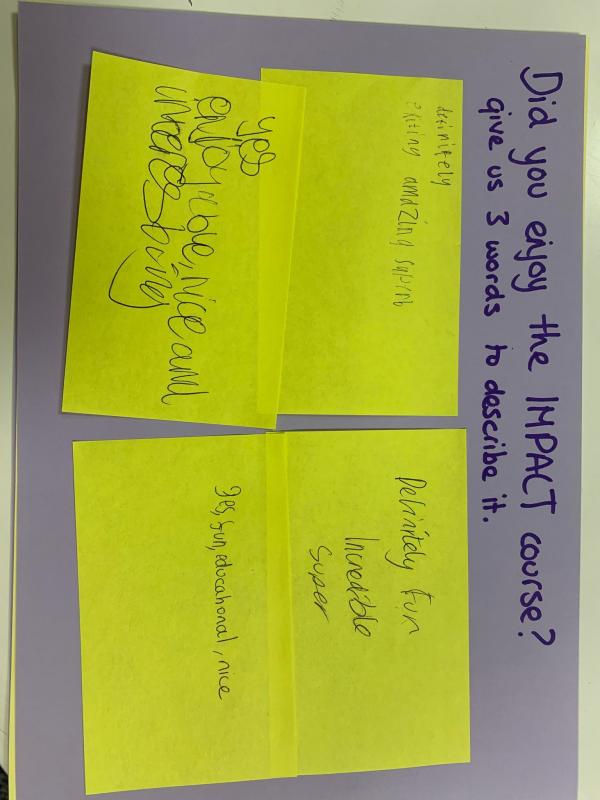 Did you enjoy the IMPACT course?
give us 3 words to describe it.
definitely
exiting amazing superb
yes
enjoyable, nice and
Definitely Fun
Incredible
Super
Yes, fun, educational, nice